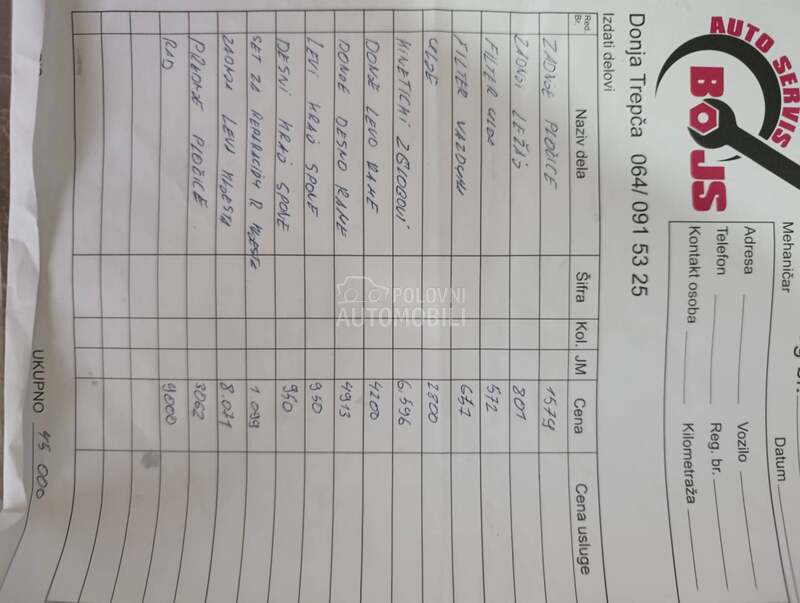 AUTO SERVIS
BOJS
Donja Trepča 064/ 091 53 25
Mehaničar
Datum
Adresa
Vozilo
Telefon
Reg. br.
Kontakt osoba
Kilometraža
Izdati delovi
Red. Br. Naziv dela Šifra Kol. JM Cena Cena usluge
ZADNJE PLOČICE 1574
ZADNJI LEŽAJ 801
FILTER ULJA 572
FILTER VAZDUHA 657
ULJE 2800
KINETIČKI ZGLOBOVI 6.596
DONJE LEVO RAME 4200
DONJE DESNO RAME 4913
LEVI KRAJ SPONE 950
DESNI KRAJ SPONE 950
SET ZA REPARACIJU R KLJESTA 1 099
ZADNJA LEVA KLJESTA 8.071
PREDNJE PLOČICE 3062
RAD 9000
UKUPNO 45 000
POLOVNI
AUTOMOBILI